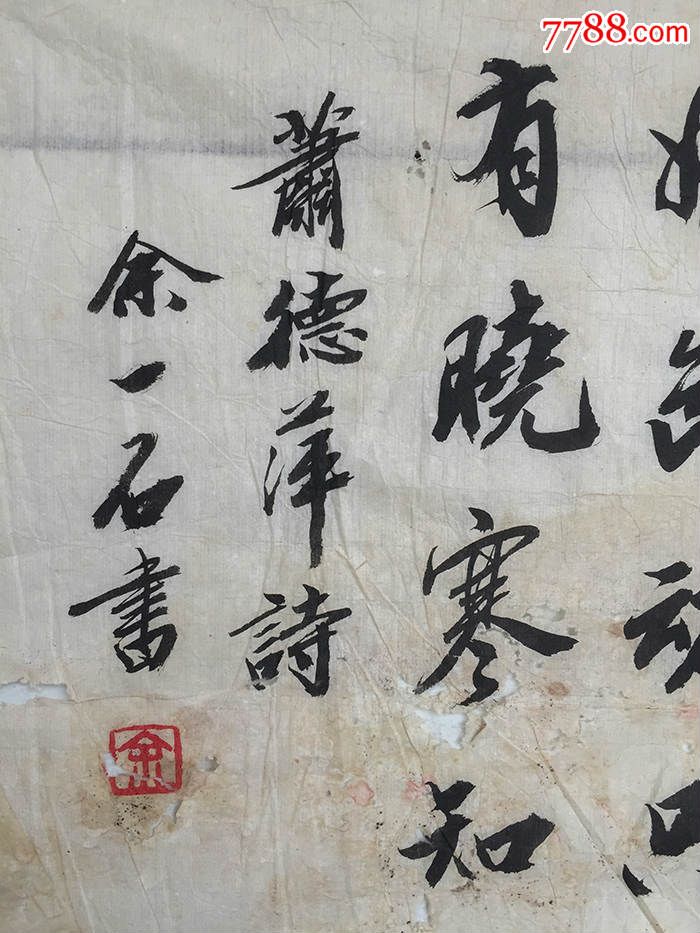 7788.com
有晓寒知
蕭德萍詩
余一石書
余